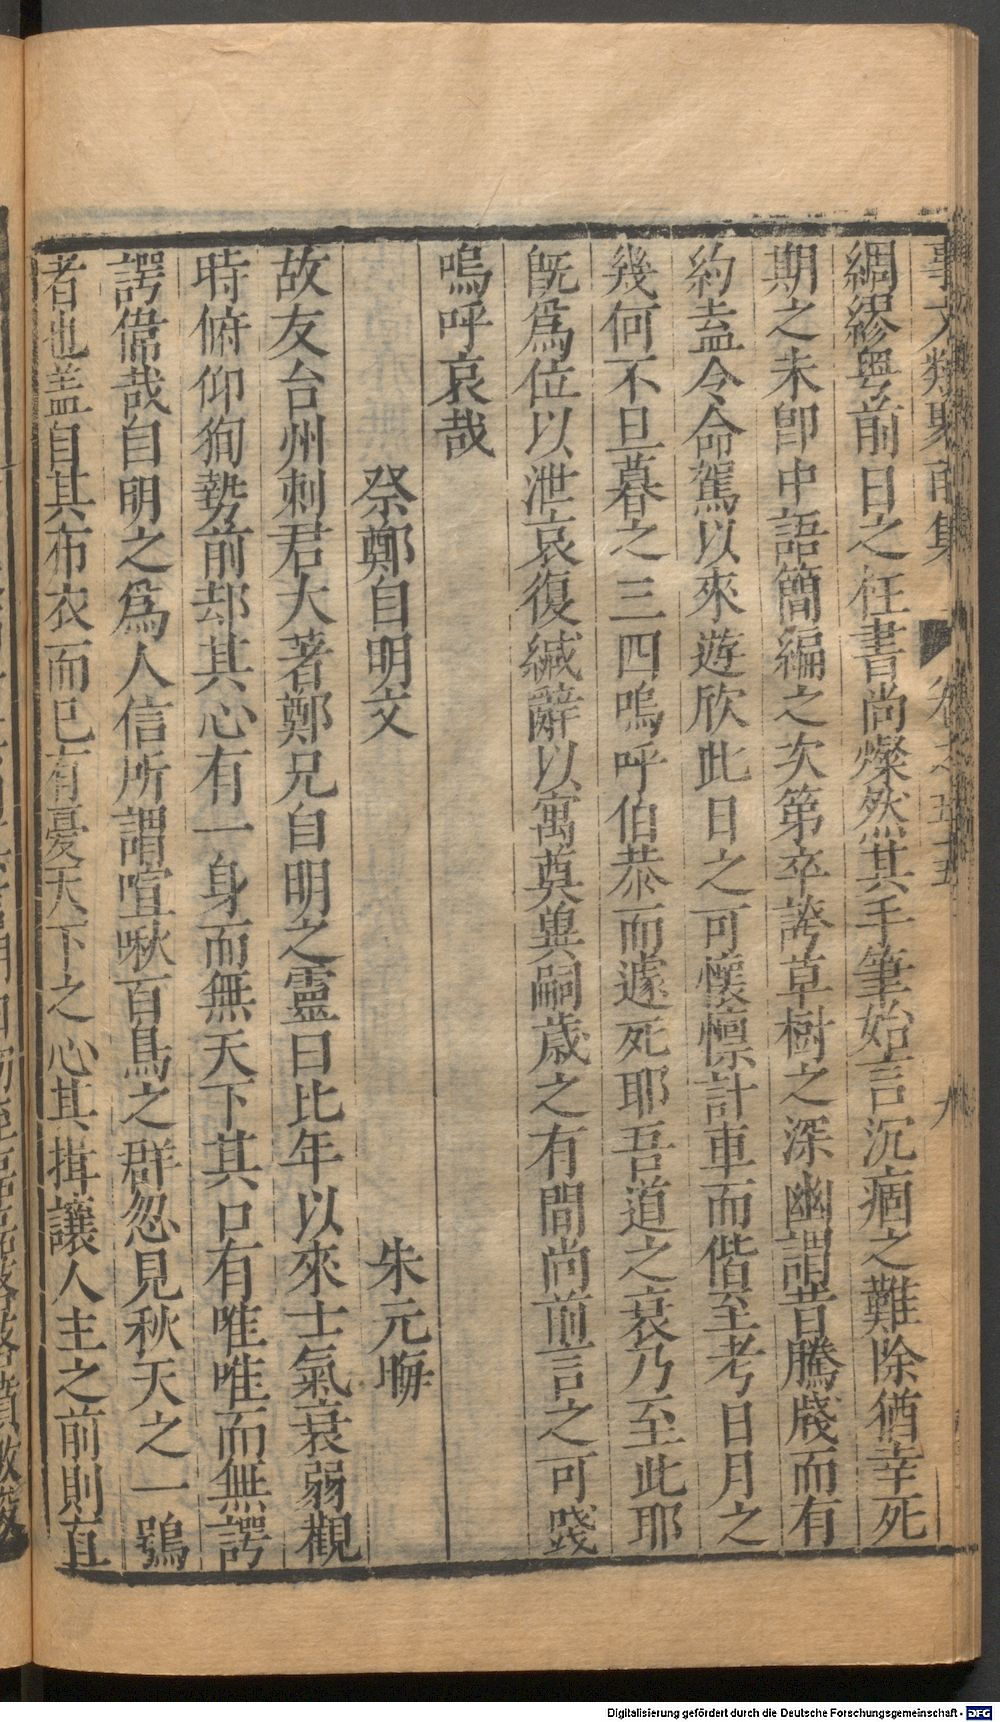 事文類聚前集 卷之五十五 九
綢繆粤前日之枉書尚燦然其手筆始言沉痼之難除猶幸死
期之未卽中語簡編之次第卒誇草樹之深幽謂昔騰牋而有
約盍今命駕以來遊欣此日之可懷懔計車而偕至考日月之
幾何不旦暮之三四嗚呼伯恭而遽死耶吾道之衰乃至此耶
旣爲位以泄哀復緘辭以寓奠㒷嗣歲之有間尚前言之可踐
嗚呼哀哉
祭鄭自明文 朱元晦
故友台州刺君大著鄭兄自明之靈曰比年以來士氣衰弱觀
時俯仰狥勢前却其心有一身而無天下其口有唯唯而無諤
諤偉哉自明之爲人信所謂喧啾百鳥之群忽見秋天之一鶚
者也盖自其布衣而已有憂天下之心其揖讓人主之前則直
Digitalisierung gefördert durch die Deutsche Forschungsgemeinschaft - DFG